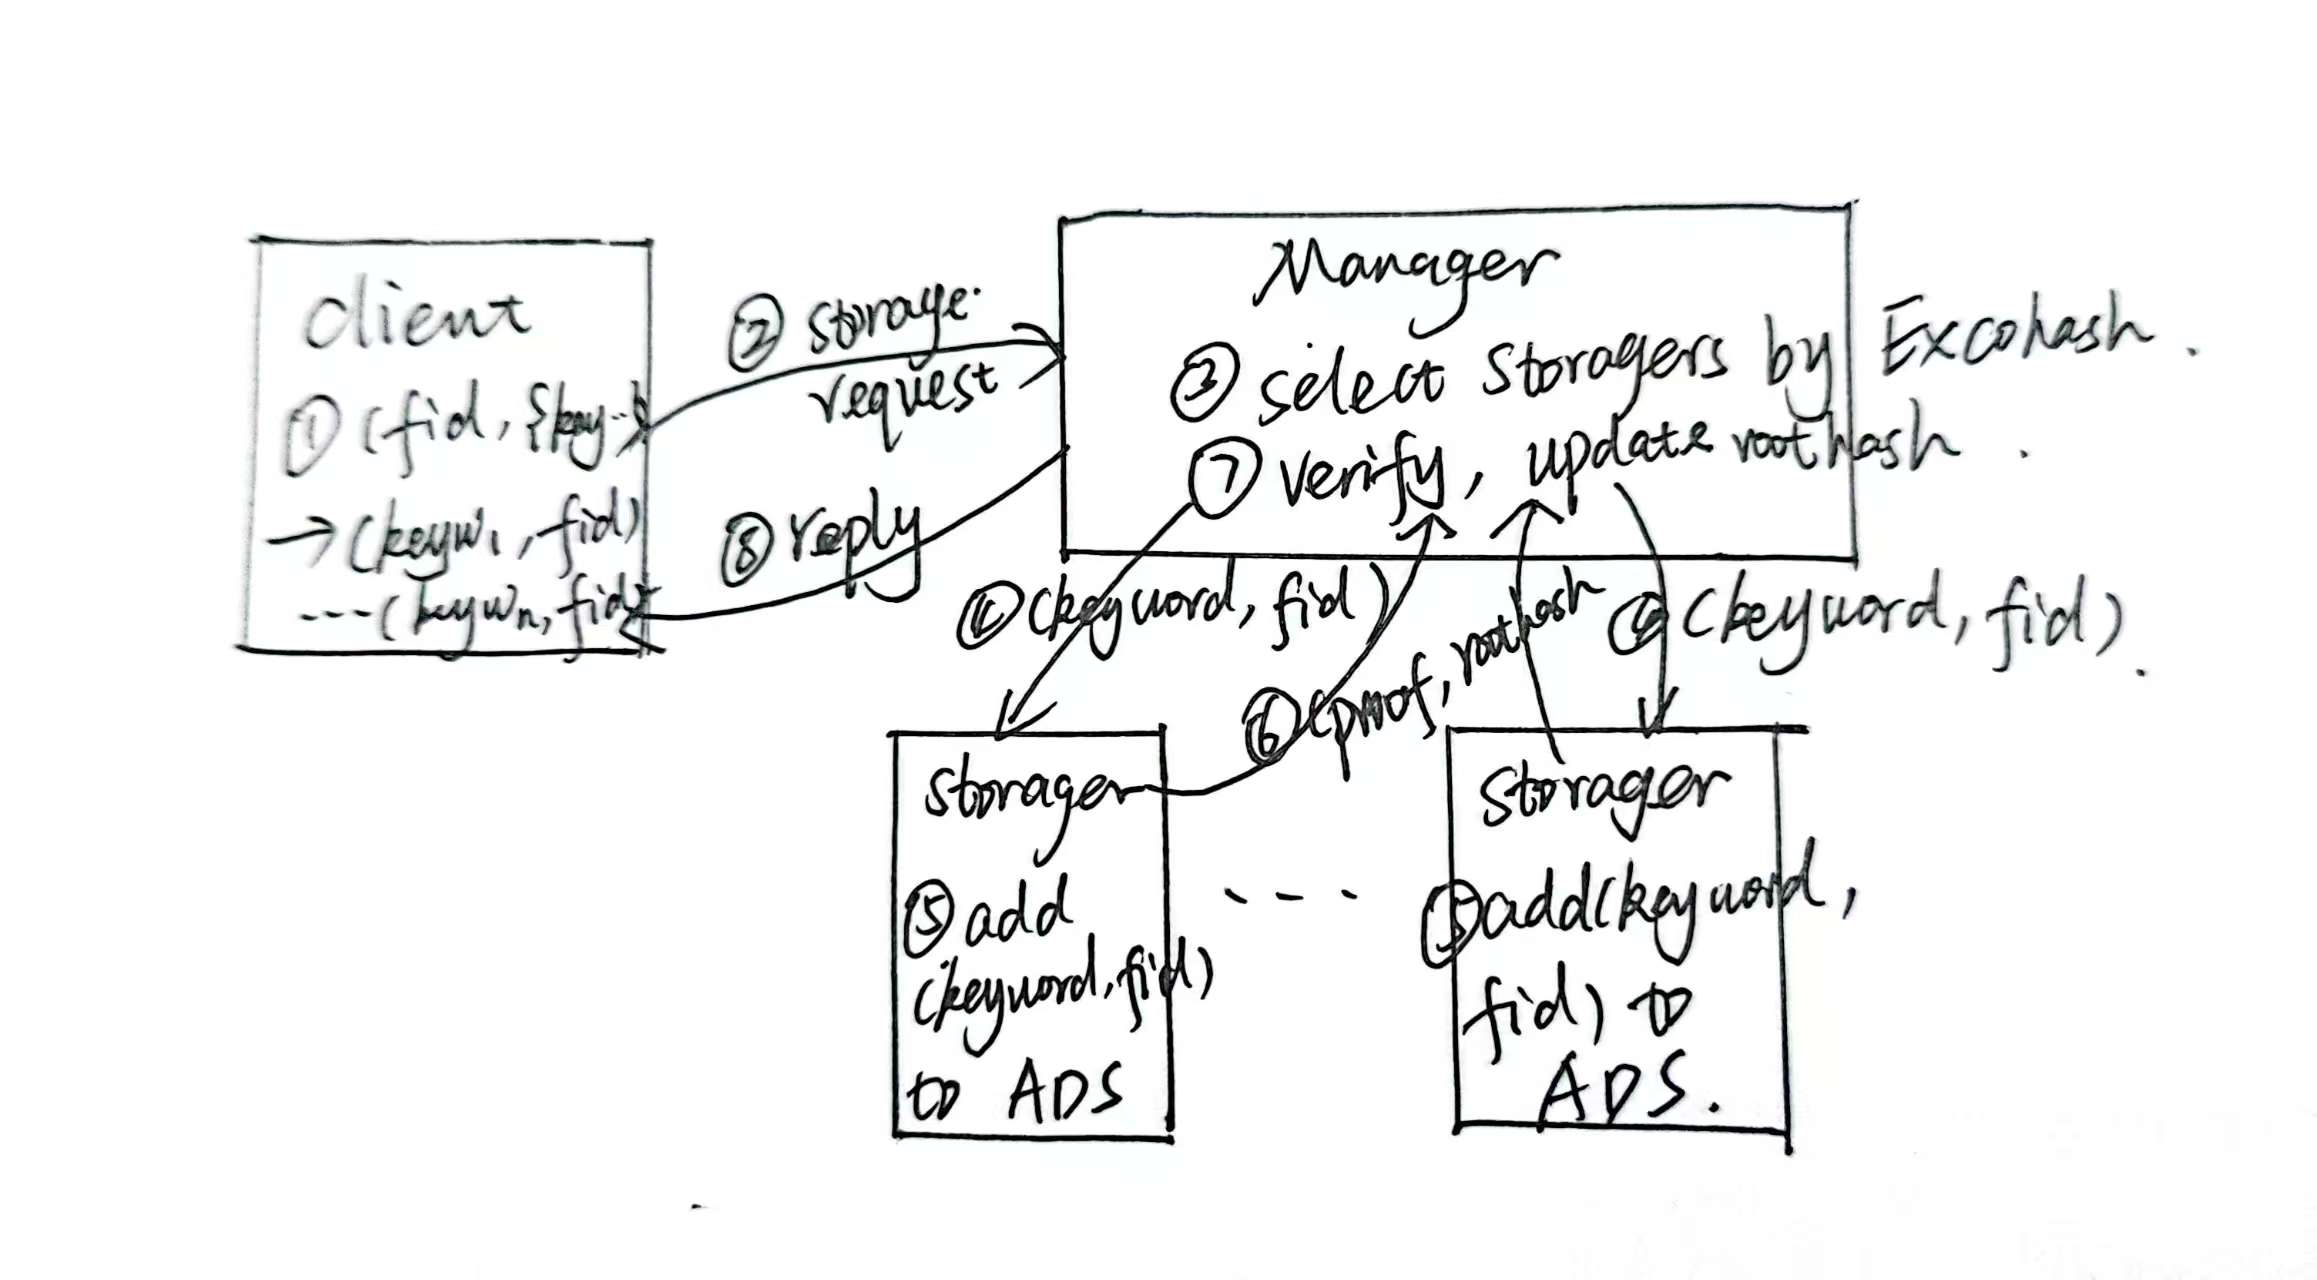 client
① (fid, {key..}
→ (keyw₁, fid)
---(keywₙ, fid)
② storage
request
⑧ reply
Manager
③ select storagers by Excohash.
⑦ verify, update roothash.
④ (keyword, fid)
⑥ (proof, roothash
④ (keyword, fid).
storager
⑤ add
(keyword, fid)
to ADS
- - -
storager
⑤ add(keyword,
fid) to
ADS.